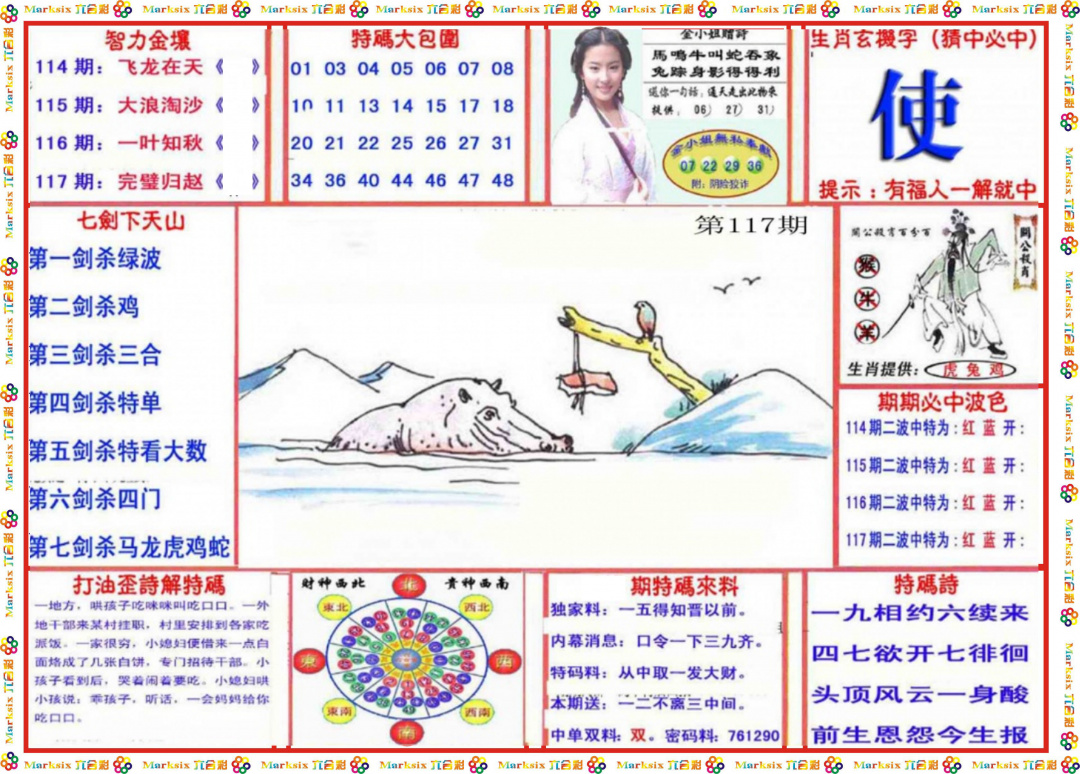 智力金壤
114期：飞龙在天《 》
115期：大浪淘沙《 》
116期：一叶知秋《 》
117期：完璧归赵《 》
特碼大包圍
01 03 04 05 06 07 08
10 11 13 14 15 17 18
20 21 22 25 26 27 31
34 36 40 44 46 47 48
金小姐赠詩
馬鳴牛叫蛇吞象
兔踪身影得得利
送你一句话：通天走出北物來
提供：06) 27) 31)
金小姐無私奉獻
07 22 29 36
附：阴险狡诈
生肖玄機字（猜中必中）
使
提示：有福人一解就中
七劍下天山
第一剑杀绿波
第二剑杀鸡
第三剑杀三合
第四剑杀特单
第五剑杀特看大数
第六剑杀四门
第七剑杀马龙虎鸡蛇
第117期
關公殺肖百分百
關公殺肖
猴
牛
羊
生肖提供：虎 兔 鸡
期期必中波色
114期二波中特为：红 蓝 开：
115期二波中特为：红 蓝 开：
116期二波中特为：红 蓝 开：
117期二波中特为：红 蓝 开：
打油歪詩解特碼
一地方，哄孩子吃咪咪叫吃口口。一外
地干部来某村挂职，村里安排到各家吃
派饭。一家很穷，小媳妇便借来一点白
面烙成了几张白饼，专门招待干部。小
孩子看到后，哭着闹着要吃。小媳妇哄
小孩说：乖孩子，听话，一会妈妈给你
吃口口。
財神西北
貴神西南
北
東北
西北
東
西
東南
西南
南
期特碼來料
独家料：一五得知晋以前。
内幕消息：口令一下三九齐。
特码料：从中取一发大财。
本期送：一二不离三中间。
中单双料：双。密码料：761290
特碼詩
一九相约六续来
四七欲开七徘徊
头顶风云一身酸
前生恩怨今生报